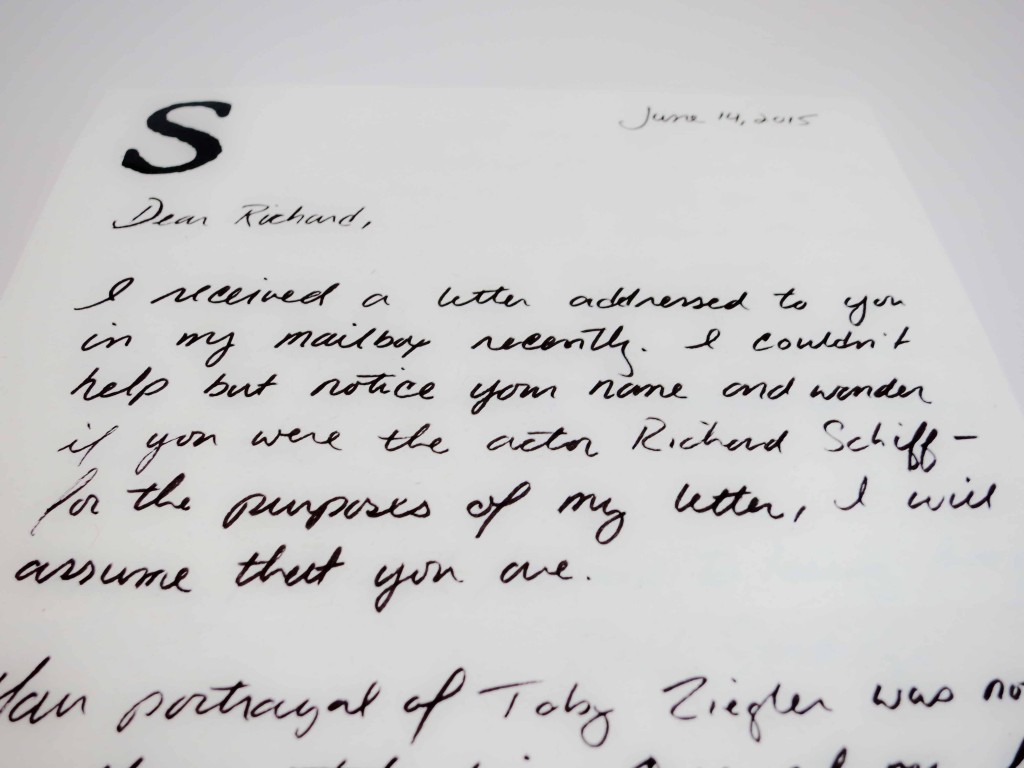 S
June 14, 2015
Dear Richard,
I received a letter addressed to you
in my mailbox recently. I couldn't
help but notice your name and wonder
if you were the actor Richard Schiff –
for the purposes of my letter, I will
assume that you are.
Your portrayal of Toby Ziegler was